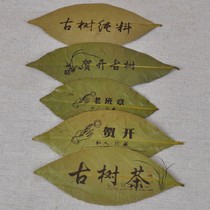 古树纯料
贺开古树
老班章
贺开
古树茶